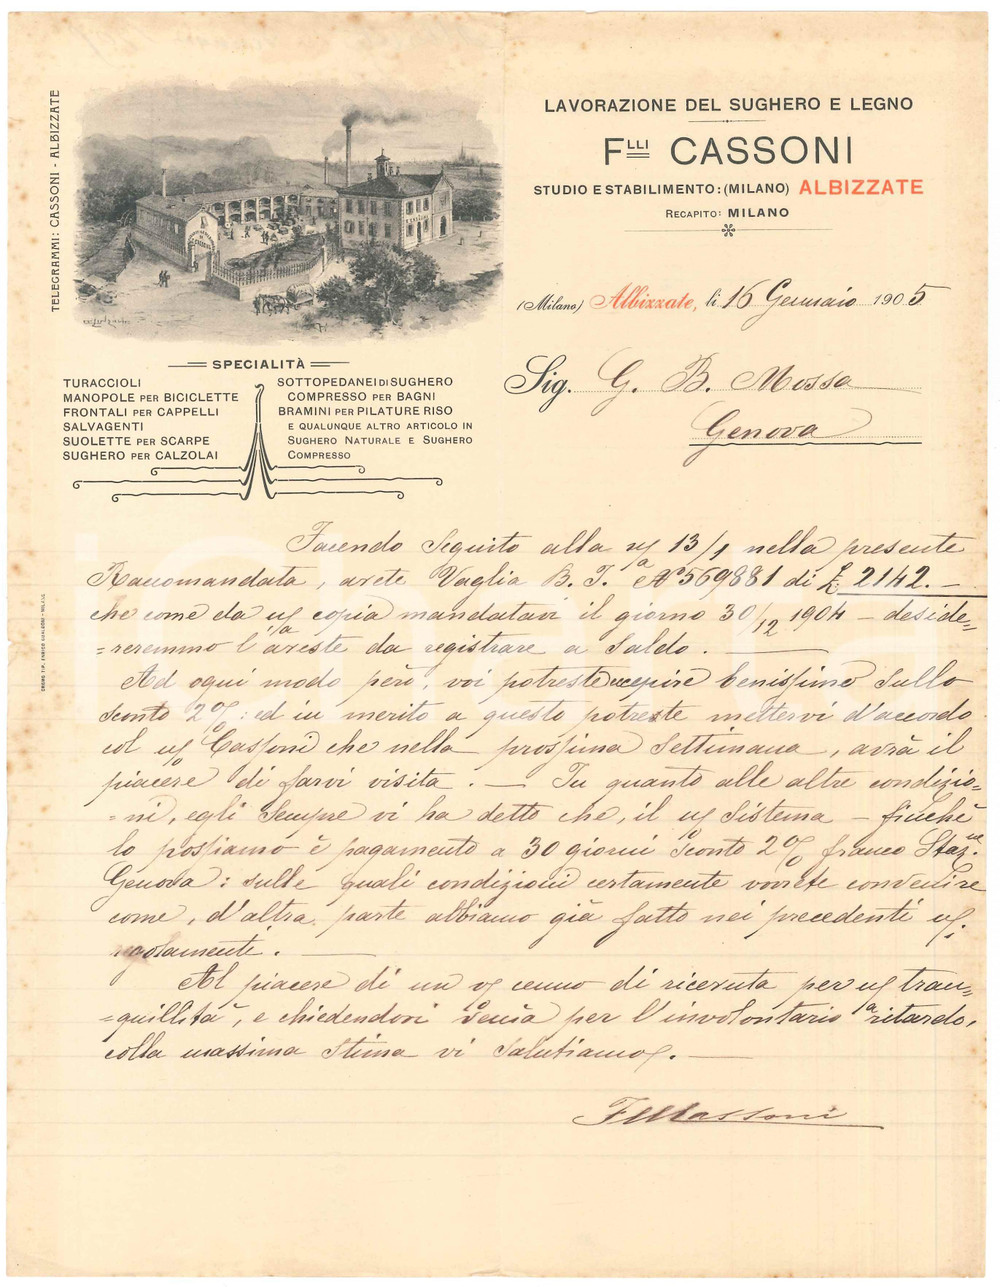 TELEGRAMMI: CASSONI - ALBIZZATE
LAVORAZIONE DEL SUGHERO E LEGNO
FLLI CASSONI
STUDIO E STABILIMENTO: (MILANO) ALBIZZATE
RECAPITO: MILANO
(Milano) Albizzate, li 16 Gennaio 1905
SPECIALITÀ
TURACCIOLI
MANOPOLE PER BICICLETTE
FRONTALI PER CAPPELLI
SALVAGENTI
SUOLETTE PER SCARPE
SUGHERO PER CALZOLAI
SOTTOPEDANEI DI SUGHERO
COMPRESSO PER BAGNI
BRAMINI PER PILATURE RISO
E QUALUNQUE ALTRO ARTICOLO IN
SUGHERO NATURALE E SUGHERO
COMPRESSO
Sig. G. B. Mossa
Genova
Facendo Seguito alla n/ 13/1 nella presente
Raccomandata, avete Vaglia B. I.a No 569881 di £ 2142.-
che come da n/ copia mandatavi il giorno 30/12 1904 - deside=
=reremmo l'aveste da registrare a Saldo.
Ad ogni modo però, voi potreste eccepire benissimo sullo
sconto 2%: ed in merito a questo potreste mettervi d'accordo
col n/ Cassoni che nella prossima Settimana, avrà il
piacere di farvi visita. - In quanto alle altre condizio=
=ni, egli Sempre vi ha detto che, il n/ Sistema - finchè
lo possiamo è pagamento a 30 giorni Sconto 2% franco Staz.ne
Genova: sulle quali condizioni certamente vorrete convenire
come, d'altra parte abbiamo già fatto nei precedenti n/.
regolamenti.
Al piacere di un v/ cenno di ricevuta per n/ tran=
=quillità, e chiedendovi venia per l'involontario ritardo,
colla massima Stima vi Salutiamo.
FlliCassoni